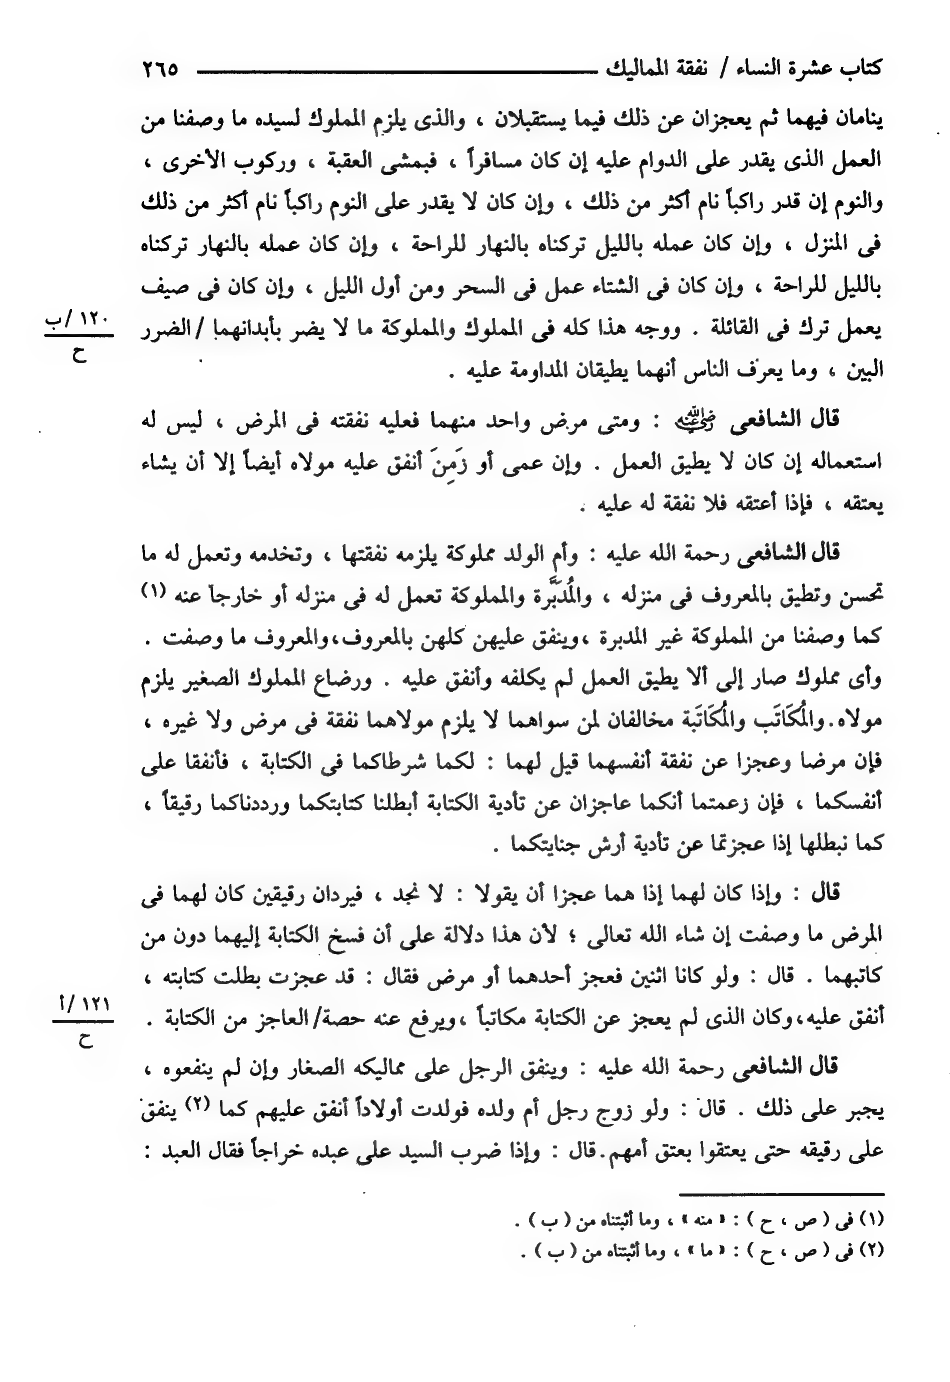 كتاب عشرة النساء / نفقة المماليك ٢٦٥
ينامان فيهما ثم يعجزان عن ذلك فيما يستقبلان ، والذى يلزم المملوك لسيده ما وصفنا من
العمل الذى يقدر على الدوام عليه إن كان مسافراً ، فبمشى العقبة ، وركوب الأخرى ،
والنوم إن قدر راكباً نام أكثر من ذلك ، وإن كان لا يقدر على النوم راكباً نام أكثر من ذلك
فى المنزل ، وإن كان عمله بالليل تركناه بالنهار للراحة ، وإن كان عمله بالنهار تركناه
بالليل للراحة ، وإن كان فى الشتاء عمل فى السحر ومن أول الليل ، وإن كان فى صيف
يعمل ترك فى القائلة . ووجه هذا كله فى المملوك والمملوكة ما لا يضر بأبدانهما / الضرر
١٢٠ /ب
ح
البين ، وما يعرف الناس أنهما يطيقان المداومة عليه .
قال الشافعى رضي الله عنه : ومتى مرض واحد منهما فعليه نفقته فى المرض ، ليس له
استعماله إن كان لا يطيق العمل . وإن عمى أو زَمِنَ أنفق عليه مولاه أيضاً إلا أن يشاء
يعتقه ، فإذا أعتقه فلا نفقة له عليه .
قال الشافعى رحمة الله عليه : وأم الولد مملوكة يلزمه نفقتها ، وتخدمه وتعمل له ما
تحسن وتطيق بالمعروف فى منزله ، والمُدَبَّرة والمملوكة تعمل له فى منزله أو خارجاً عنه (١)
كما وصفنا من المملوكة غير المدبرة ، وينفق عليهن كلهن بالمعروف، والمعروف ما وصفت .
وأى مملوك صار إلى ألا يطيق العمل لم يكلفه وأنفق عليه . ورضاع المملوك الصغير يلزم
مولاه. والمُكَاتَب والمُكَاتَبة مخالفان لمن سواهما لا يلزم مولاهما نفقة فى مرض ولا غيره ،
فإن مرضا وعجزا عن نفقة أنفسهما قيل لهما : لكما شرطاكما فى الكتابة ، فأنفقا على
أنفسكما ، فإن زعمتما أنكما عاجزان عن تأدية الكتابة أبطلنا كتابتكما ورددناكما رقيقاً ،
كما نبطلها إذا عجزتما عن تأدية أرش جنايتكما .
قال : وإذا كان لهما إذا هما عجزا أن يقولا : لا نجد ، فيردان رقيقين كان لهما فى
المرض ما وصفت إن شاء الله تعالى ؛ لأن هذا دلالة على أن فسخ الكتابة إليهما دون من
كاتبهما . قال : ولو كانا اثنين فعجز أحدهما أو مرض فقال : قد عجزت بطلت كتابته ،
أنفق عليه، وكان الذى لم يعجز عن الكتابة مكاتباً ، ويرفع عنه حصة/ العاجز من الكتابة .
١٢١ /أ
ح
قال الشافعى رحمة الله عليه : وينفق الرجل على مماليكه الصغار وإن لم ينفعوه ،
يجبر على ذلك . قال : ولو زوج رجل أم ولده فولدت أولاداً أنفق عليهم كما (٢) ينفق
على رقيقه حتى يعتقوا بعتق أمهم. قال : وإذا ضرب السيد على عبده خراجاً فقال العبد :
(١) فى ( ص ، ح ) : « منه » ، وما أثبتناه من ( ب ) .
(٢) فى ( ص ، ح ) : « ما » ، وما أثبتناه من ( ب ) .